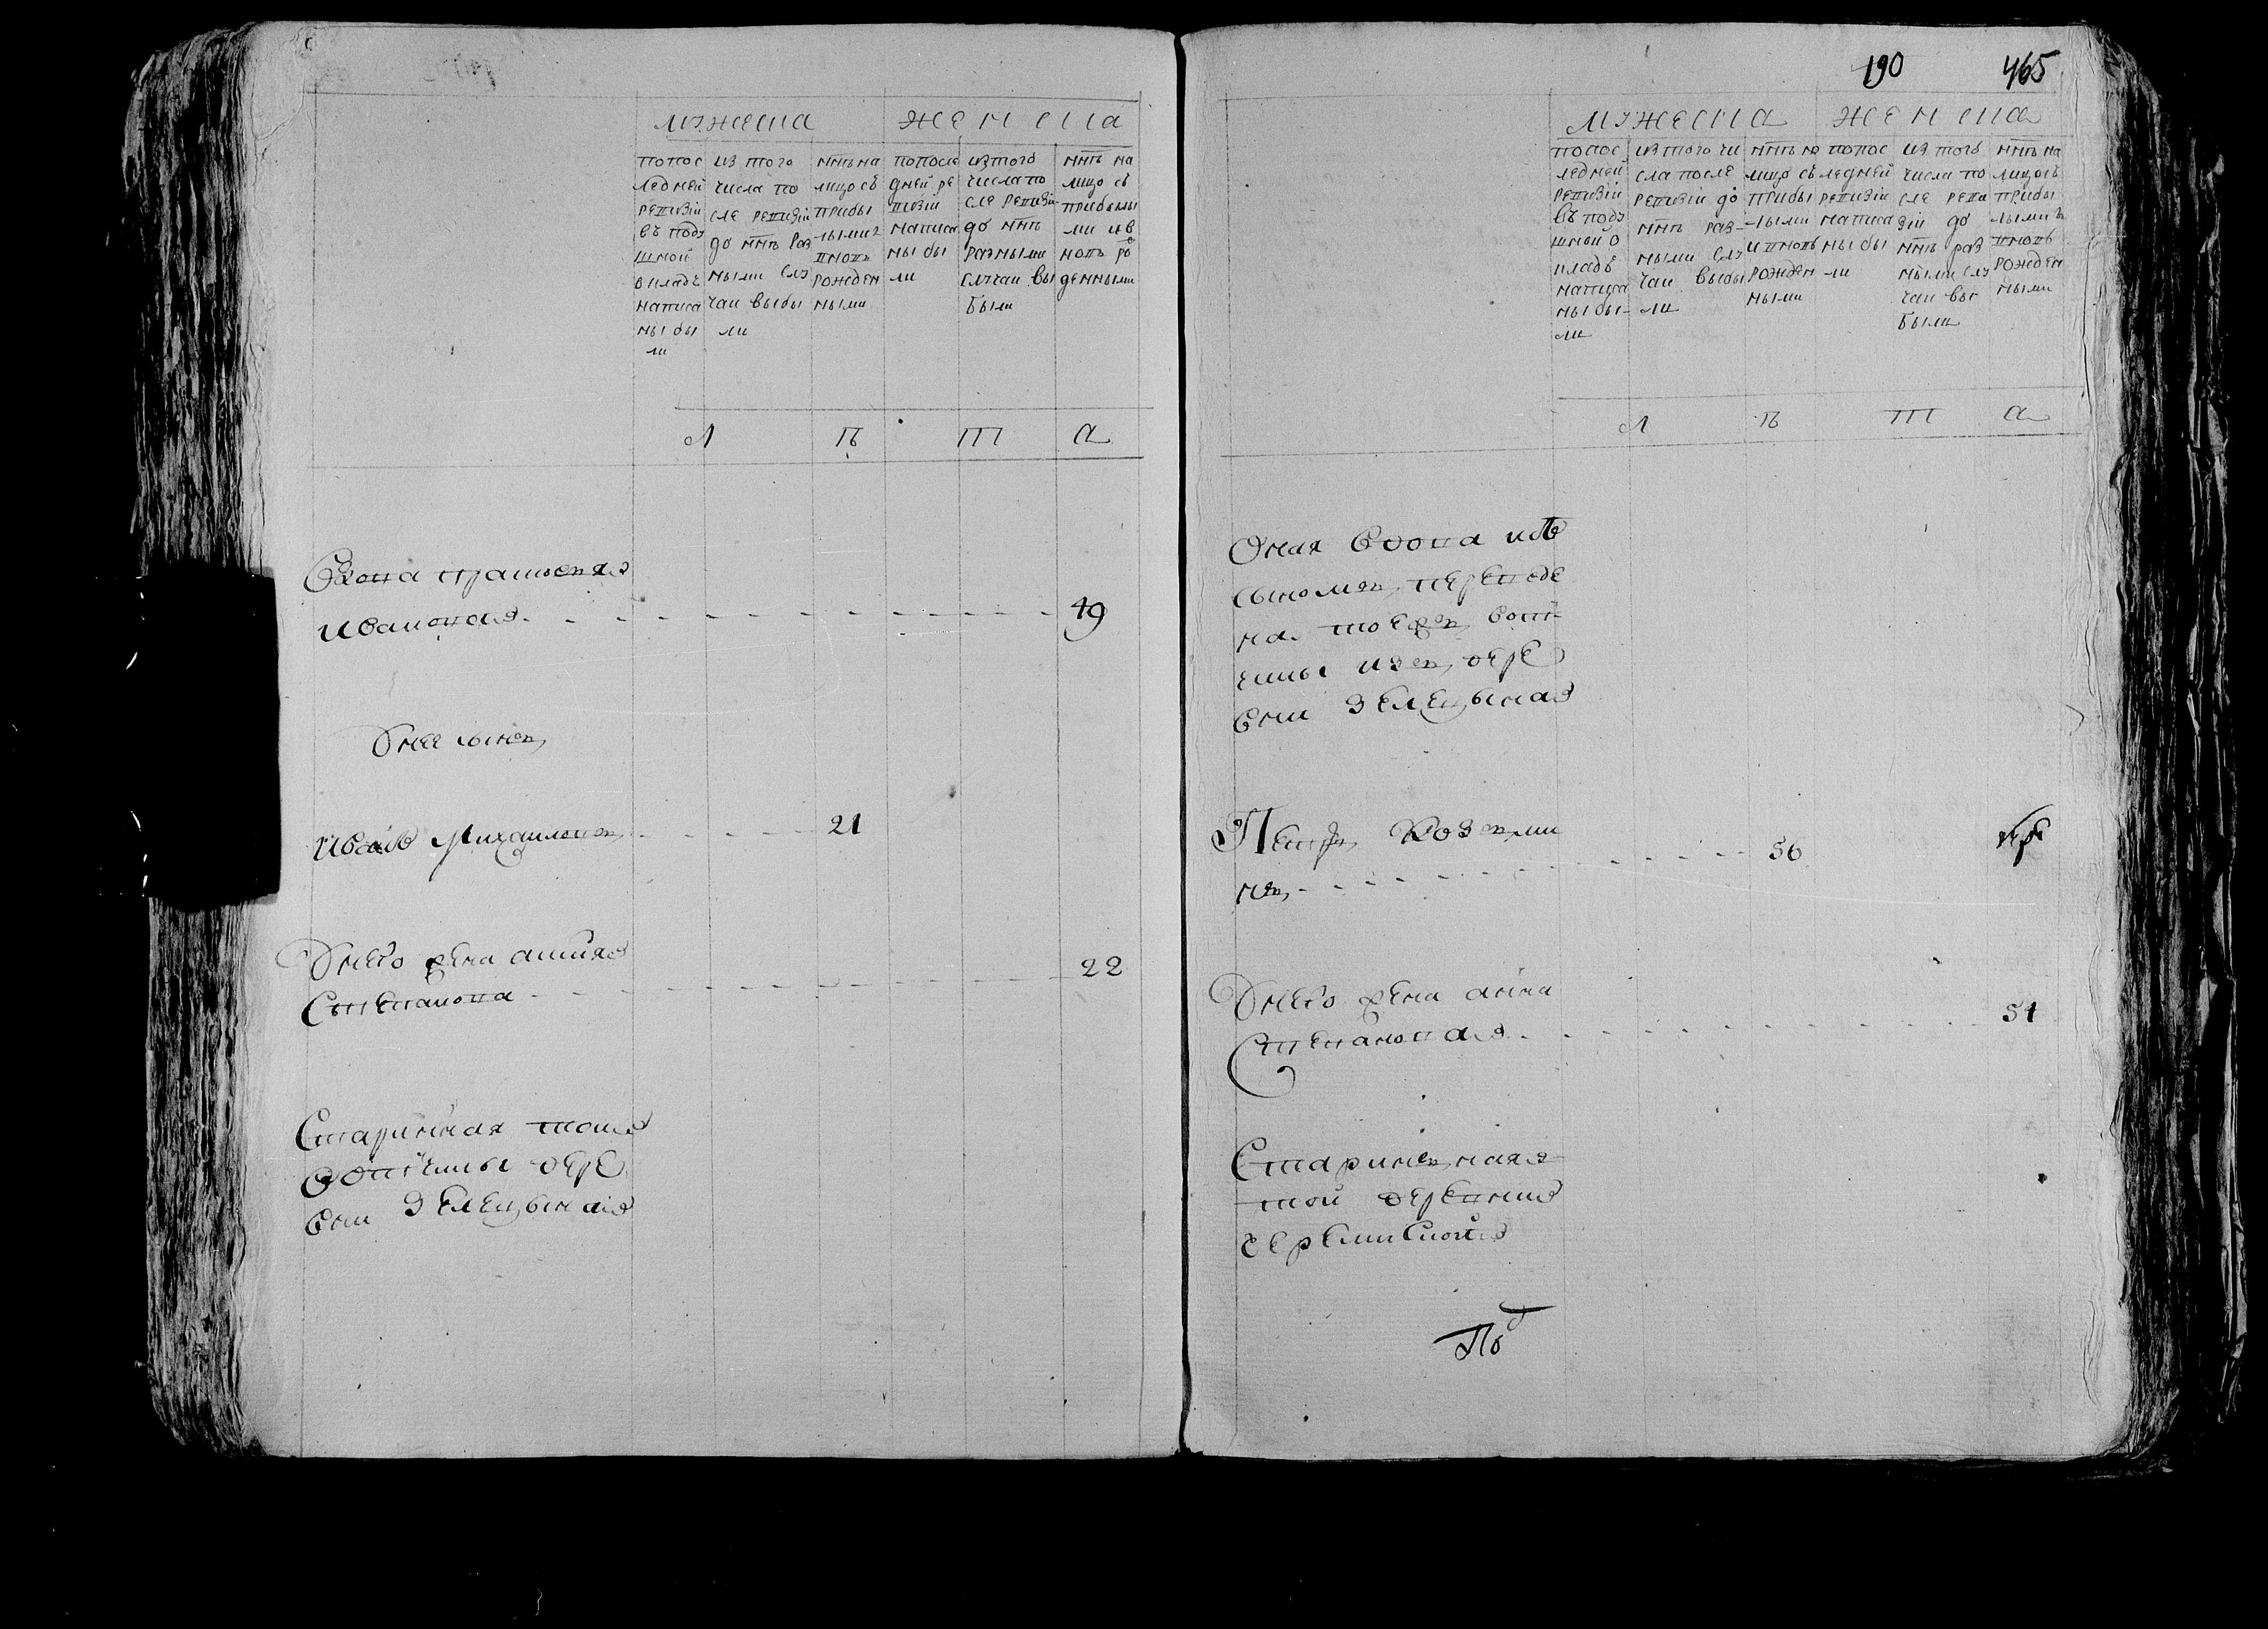 МУЖЕСКА
ЖЕНСКА
попос
ледней
ревизіи
въ поду
шной
окладъ
написа
ны бы
ли
из того
числа по
сле ревизіи
до ннѣ раз
ными слу
чаи выбы
ли
ннѣ на
лицо съ
прибы
лыми
вновь
рожден
ными
попосле
дней ре
визіи
написа
ны бы
ли
из того
числа по
сле ревизіи
до ннѣ
разными
случаи вы
были
ннѣ на
лицо съ
прибылы
ми и в
новь ро
жденными
Л
Ѣ
Т
А
Вдова
Ивановна 49
У нее сынъ
Иванъ Михаиловъ 21
У него жена
Степанова 22
Старинная тоя
вотчины дере
вни Зеленцына
190 465
МУЖЕСКА
ЖЕНСКА
попос
ледней
ревизіи
въ поду
шной о
кладъ
написа
ны бы
ли
из того чи
сла после
ревизіи до
ннѣ раз
ными слу
чаи выбы
ли
ннѣ на
лицо съ
прибы
лыми
и вновь
рожден
ными
попос
ледней
ревизіи
написа
ны бы
ли
из того
числа по
сле реви
зіи до
ннѣ раз
ными слу
чаи вы
были
ннѣ на
лицо съ
прибы
лыми
вновь
рожден
ными
Л
Ѣ
Т
А
Оная вдова съ
сыномъ переведе
на тоежъ вотъ
чины изъ дере
вни Зеленцына
Петръ Козьми
нъ 56
У него жена анна
Степанова 51
Стариньная
той деревни
По